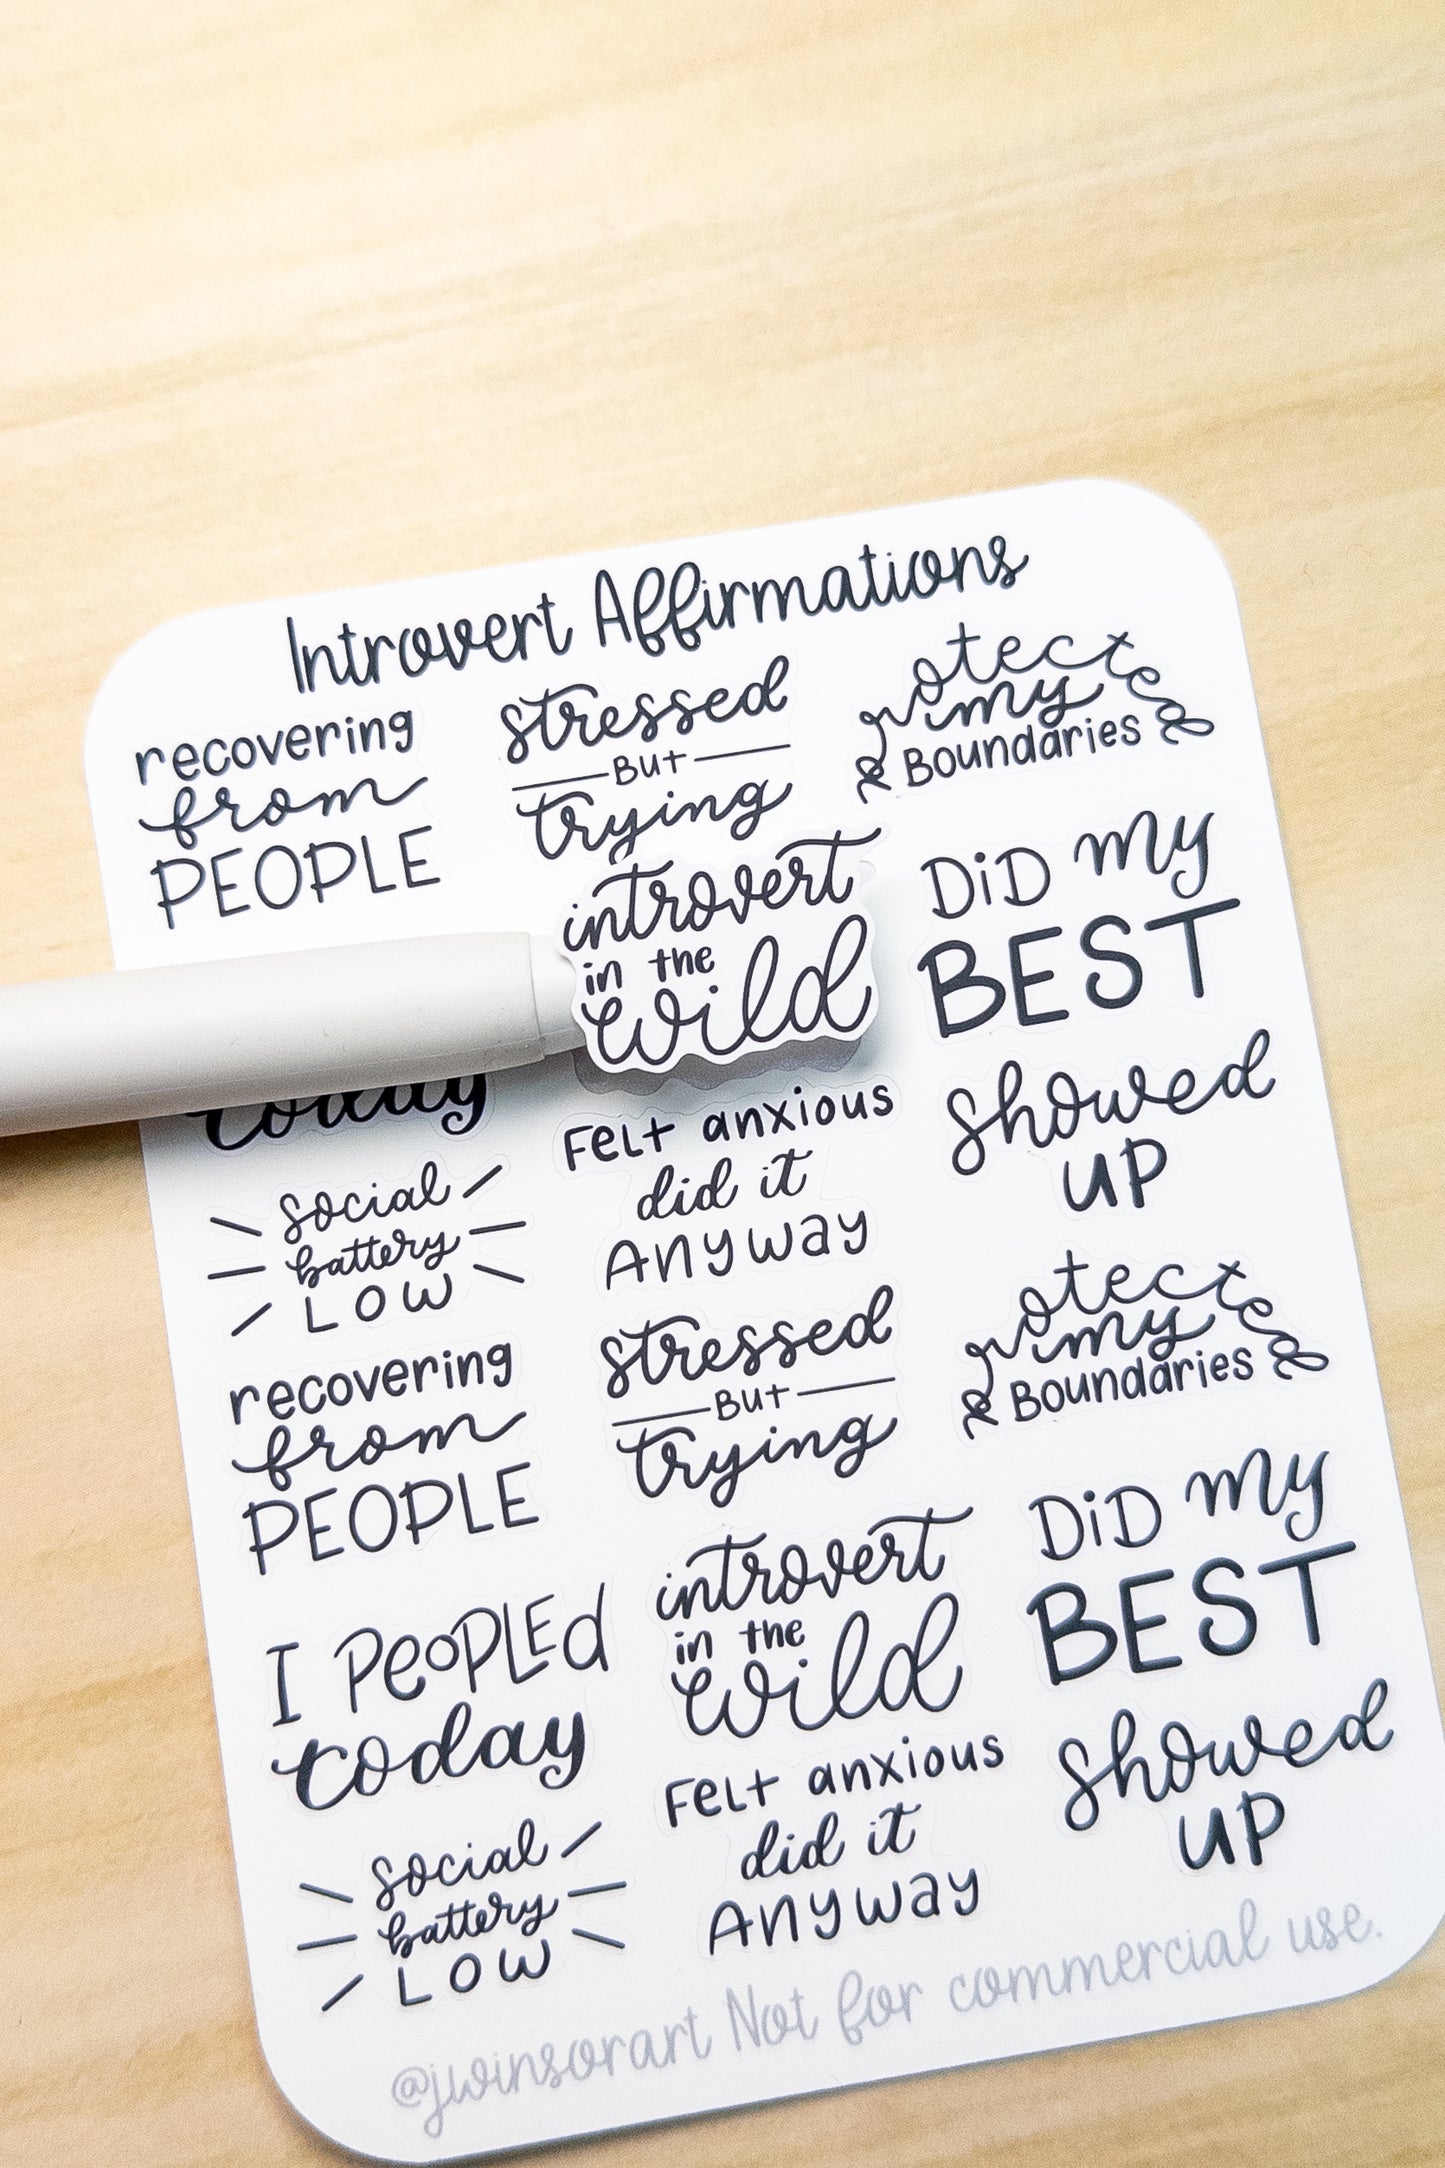 Introvert Affirmations
recovering
from
PEOPLE
stressed
BUT
trying
protected
my
Boundaries
introvert
in the
wild
DiD my
BEST
today
Felt anxious
did it
ANyway
showed
UP
social
battery
LOW
recovering
from
PEOPLE
stressed
BUT
trying
protected
my
Boundaries
I PeoPLEd
today
introvert
in the
wild
DiD my
BEST
social
battery
LOW
Felt anxious
did it
ANyway
showed
UP
@jwinsorart Not for commercial use.